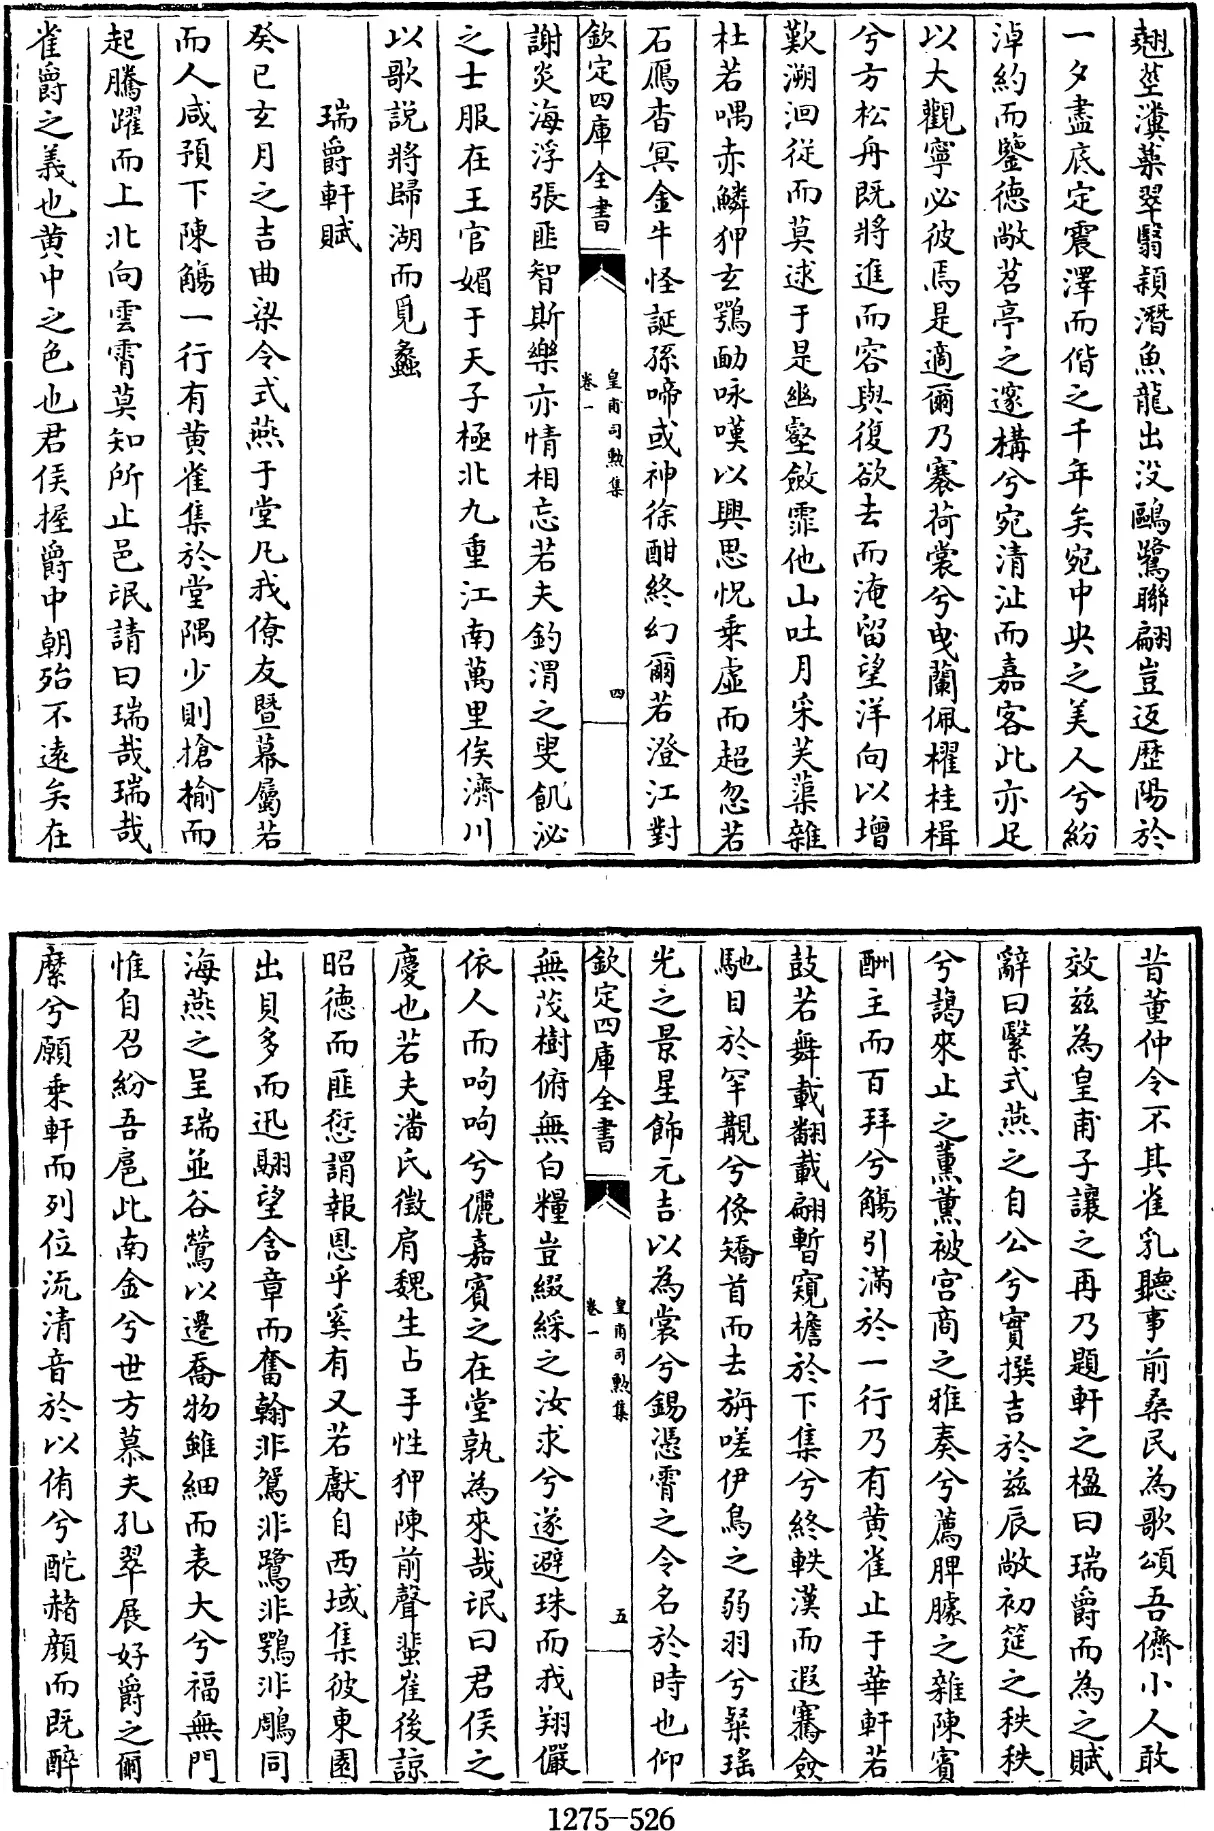 翹莖瀵蘂翠翳穎潛魚龍出没鷗鷺聯翩豈返歴陽於
一夕盡底定震澤而偕之千年矣宛中央之美人兮紛
淖約而鑒德敞苕亭之邃構兮宛清沚而嘉客此亦足
以大觀寧必彼焉是適爾乃褰荷裳兮曵蘭佩櫂桂楫
兮方松舟既將進而容與復欲去而淹留望洋向以增
歎溯洄從而莫逑于是幽壑斂霏他山吐月采芙蕖雜
杜若喁赤鱗狎玄鶚勔咏嘆以興思怳乗虚而超忽若
石鴈杳冥金牛怪誕孫啼或神徐酣終幻爾若澄江對
欽定四庫全書
皇甫司勲集
卷一
四
謝炎海浮張匪智斯樂亦情相忘若夫釣渭之叟飢泌
之士服在王官媚于天子極北九重江南萬里俟濟川
以歌説將歸湖而覓蠡
瑞爵軒賦
癸巳玄月之吉曲梁令式燕于堂凡我僚友暨幕屬若
而人咸預下陳觴一行有黄雀集於堂隅少則搶榆而
起騰躍而上北向雲霄莫知所止邑氓請曰瑞哉瑞哉
雀爵之義也黄中之色也君侯握爵中朝殆不遠矣在
昔董仲令不其雀乳聽事前桑民為歌頌吾儕小人敢
效兹為皇甫子讓之再乃題軒之楹曰瑞爵而為之賦
辭曰繄式燕之自公兮實撰吉於兹辰敞初筵之秩秩
兮藹來止之薰薰被宫商之雅奏兮薦脾臄之雜陳賓
酬主而百拜兮觴引滿於一行乃有黄雀止于華軒若
鼓若舞載翻載翩暫窺檐於下集兮終軼漢而遐騫僉
馳目於罕覯兮倐矯首而去旃嗟伊鳥之弱羽兮粲瑤
光之景星飾元吉以為裳兮錫憑霄之令名於時也仰
欽定四庫全書
皇甫司勲集
卷一
五
無茂樹俯無白糧豈綴綵之汝求兮遂避珠而我翔儼
依人而呴呴兮儷嘉賓之在堂孰為來哉氓曰君侯之
慶也若夫潘氏徵肩魏生占手性狎陳前聲蜚崔後諒
昭德而匪愆謂報恩乎奚有又若獻自西域集彼東園
出貝多而迅翾望含章而奮翰非鴛非鷺非鶚非鵰同
海燕之呈瑞並谷鶯以遷喬物雖細而表大兮福無門
惟自召紛吾扈此南金兮世方慕夫孔翠展好爵之爾
縻兮願乗軒而列位流清音於以侑兮酡赭顔而既醉
1275-526